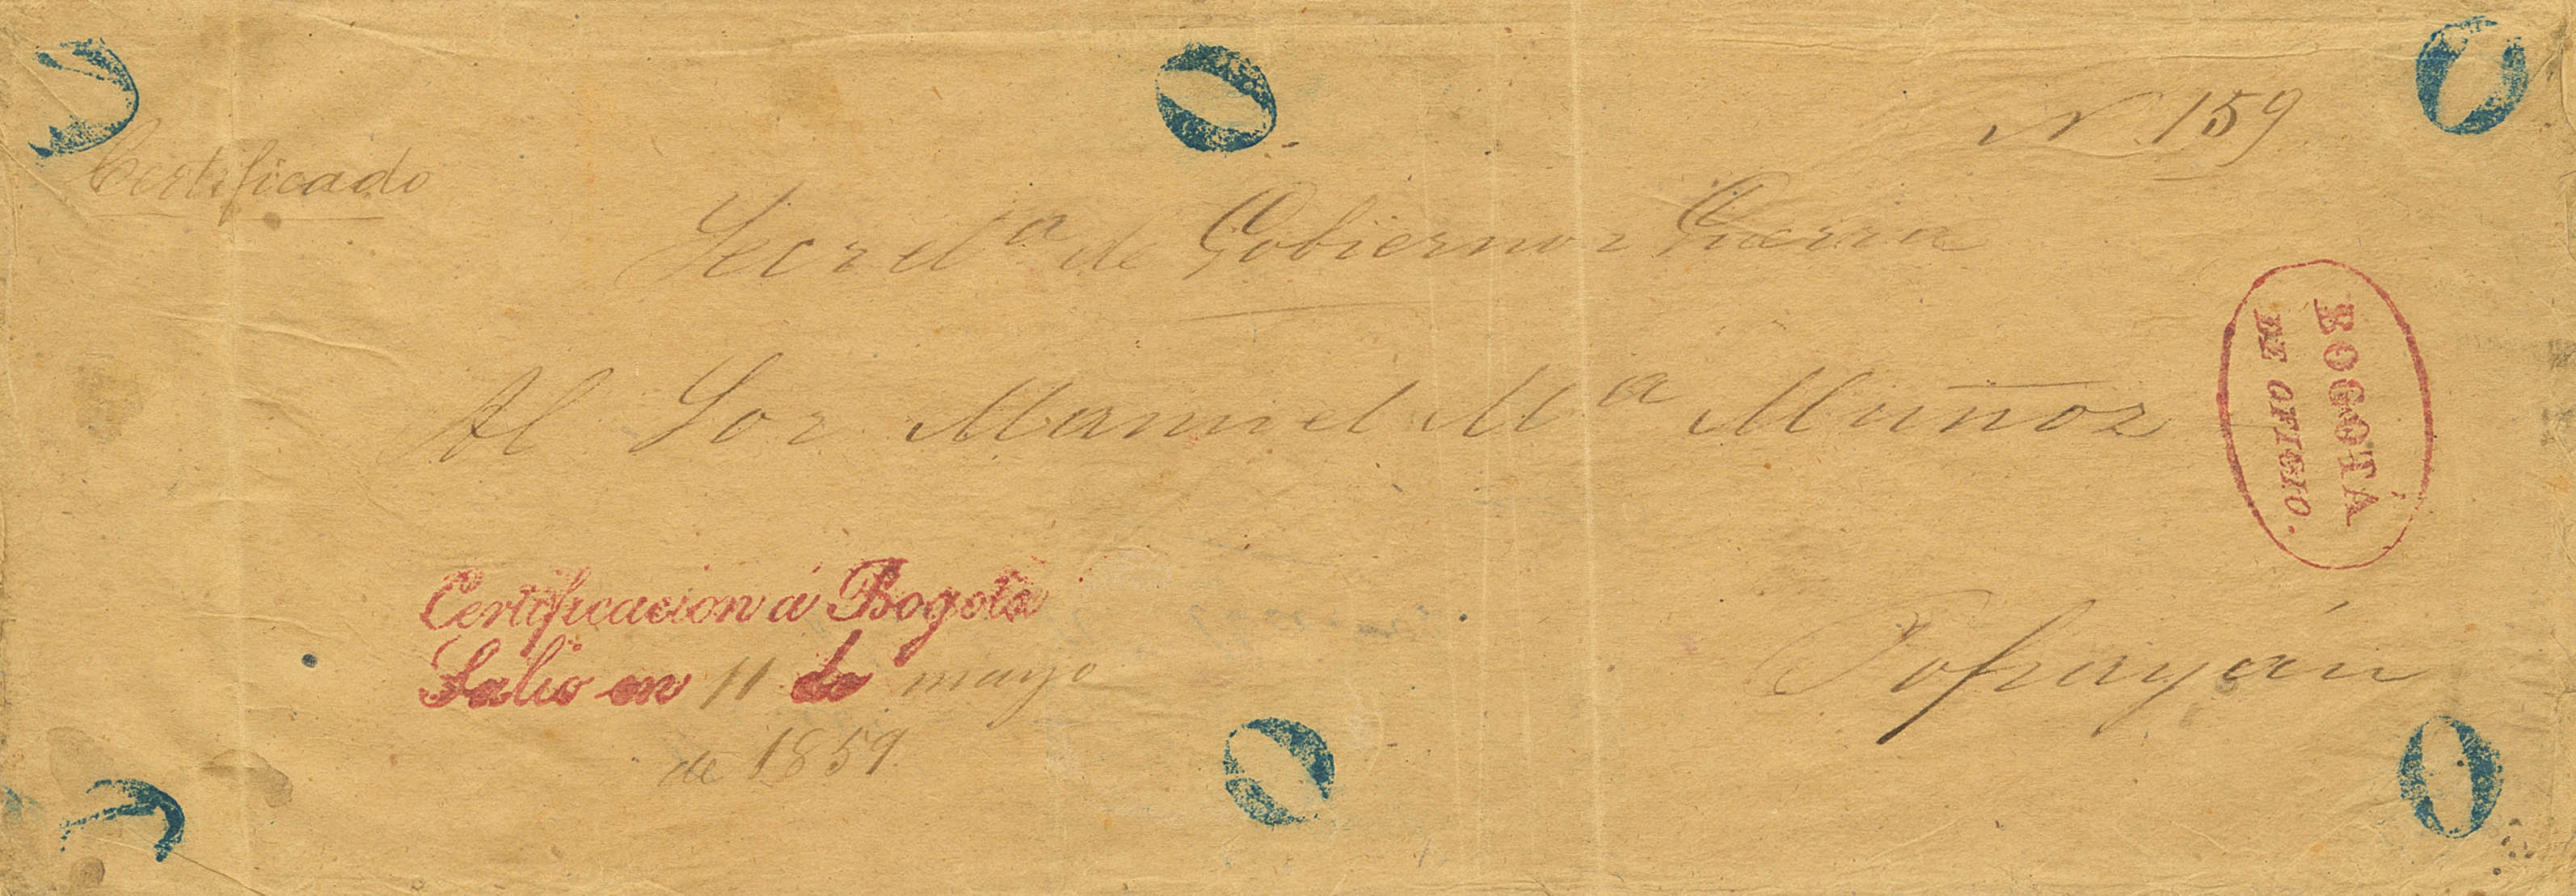 Certificado
N 159
Secretª de Gobierno i Guerra
Al Sor Manuel Mª Muñoz
BOGOTÁ
DE OFICIO.
Popayán
Certificacion á Bogotá
Salio en 11 de mayo
de 1859.
O
O
O
O